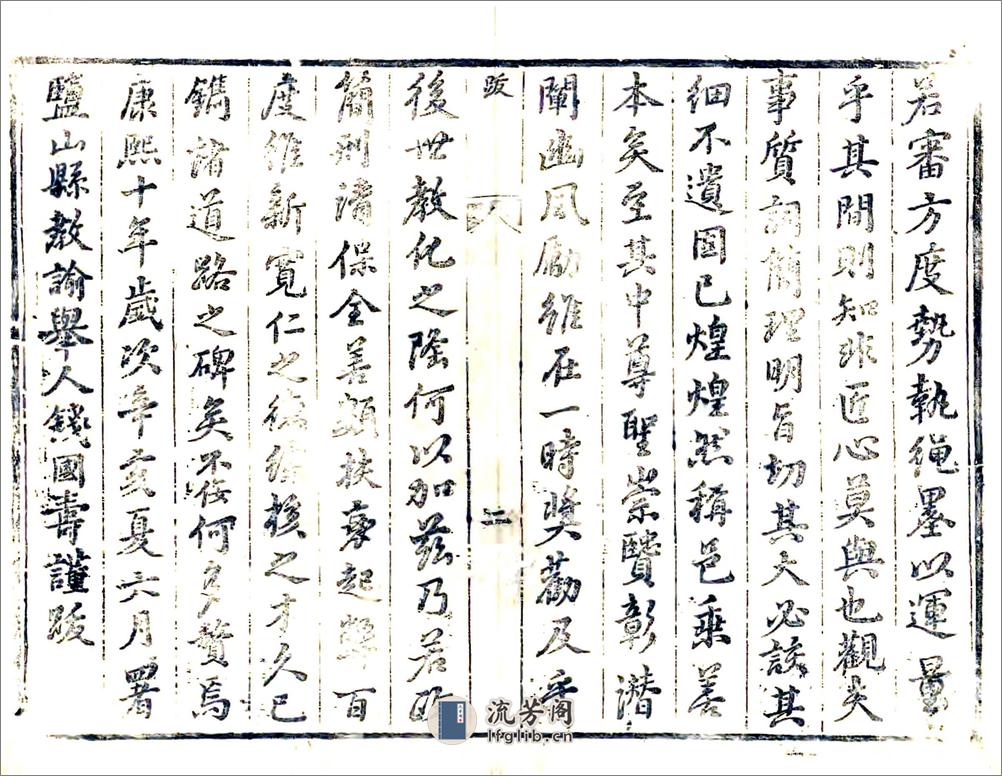 若審方度勢執繩墨以運量
乎其間則知非匠心莫與也觀夫
事質詞簡理明旨切其大必該其
細不遺固已煌煌然稱邑乘善
本矣至其中尊聖崇賢彰潛
闡幽風勵維在一時奬勸及乎
跋
二
後世教化之隆何以加茲乃若政
簡刑清保全善類扶衰起弊百
度維新寬仁之德綜核之才久已
鐫諸道路之碑矣不佞何多贅焉
康熙十年歲次辛亥夏六月署
鹽山縣教諭舉人錢國壽謹跋
流芳阁
lfglib.cn